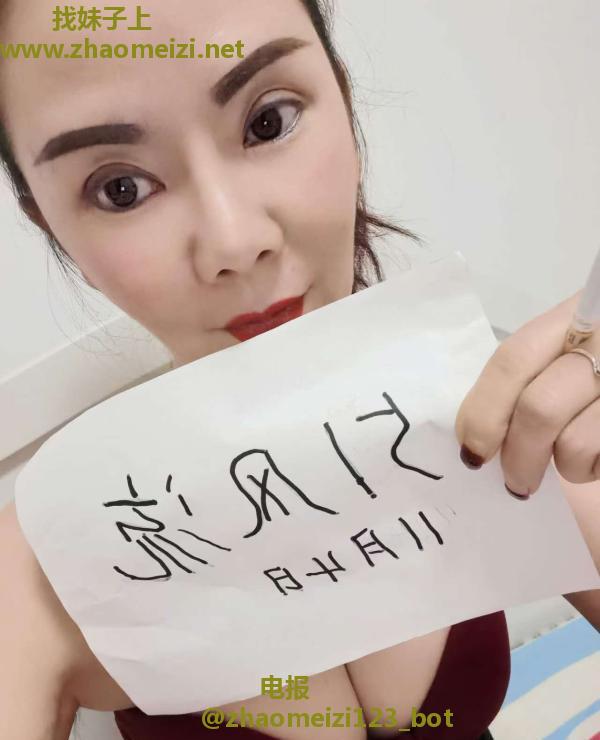 找妹子上
www.zhaomeizi.net
51风流
11月十日
电报
@zhaomeizi123_bot